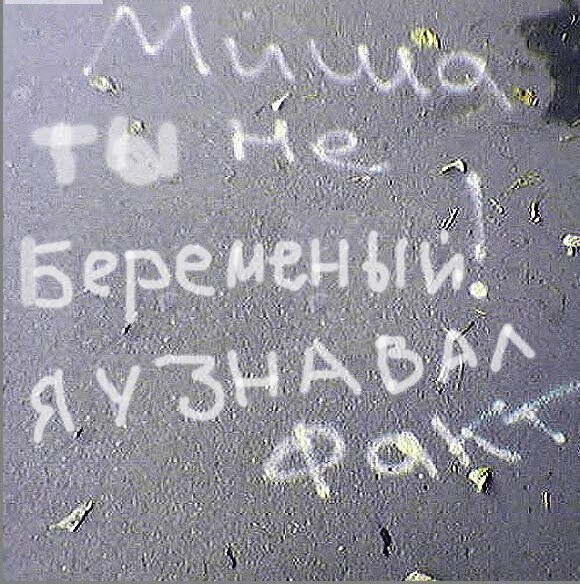 Миша
ты не
Беременый!
Я УЗНАВАЛ
факт